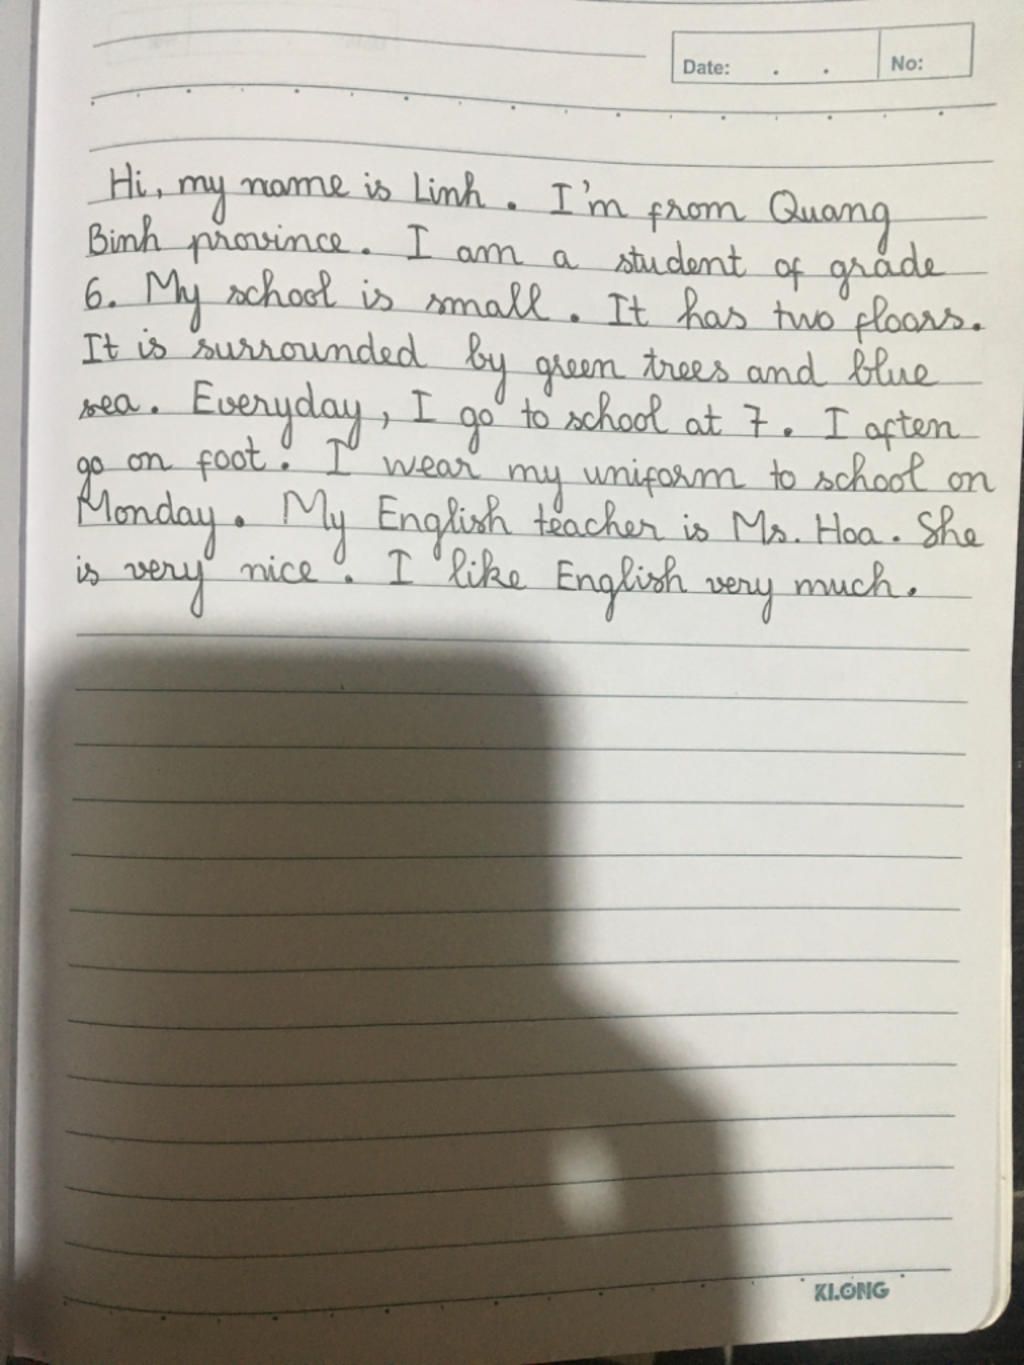 Date: . . No:
Hi, my name is Linh. I'm from Quang
Binh province. I am a student of grade
6. My school is small. It has two floors.
It is surrounded by green trees and blue
sea. Everyday, I go to school at 7. I often
go on foot. I wear my uniform to school on
Monday. My English teacher is Ms. Hoa. She
is very nice. I like English very much.
KLONG